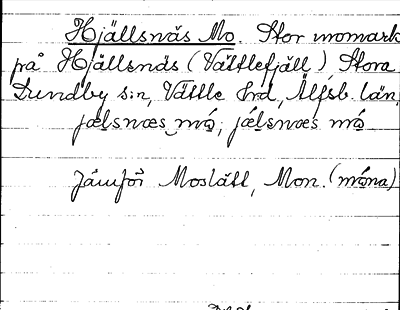 Hjällsnäs Mo. Stor momark
på Hjällsnäs (Vättlefjäll), Stora
Lundby s:n, Vättle hrd, Älfsb. län,
jælsnæs mo; jælsnæs mo
Jämför Moslätt, Mon. (mona)